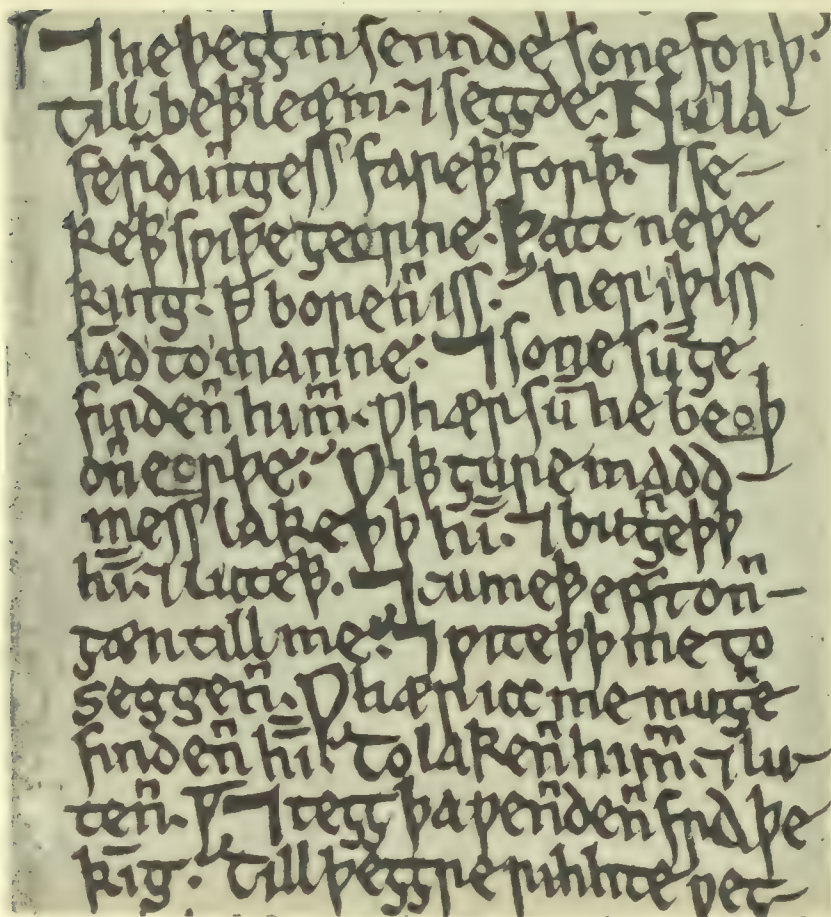 ⁊ he þeȝȝm sennde sone forþ.
till beþþleæm. ⁊ seȝȝde. Nu la
ferrdinngess fareþþ forþ. ⁊ se-
keþþ swiþe ȝeorne. þatt newe
king. þ borenn iss. her i þiss
lād to manne. ⁊ sone sū ȝe
findenn himm. whær sū he beoþ
onn eorþe. wiþþ ȝure madd
mess lakeþþ hī. ⁊ buȝheþþ
hī. ⁊ luteþþ. ⁊ cumeþþ efft onn-
ȝæn till me. ⁊ witeþþ me to
seggenn. whær icc me muȝhe
findenn hī. to lakenn himm. ⁊ lu-
tenn. ⁊ teȝȝ þa wenndenn frā þe
kīg. till þeȝȝre rihhte weȝ-